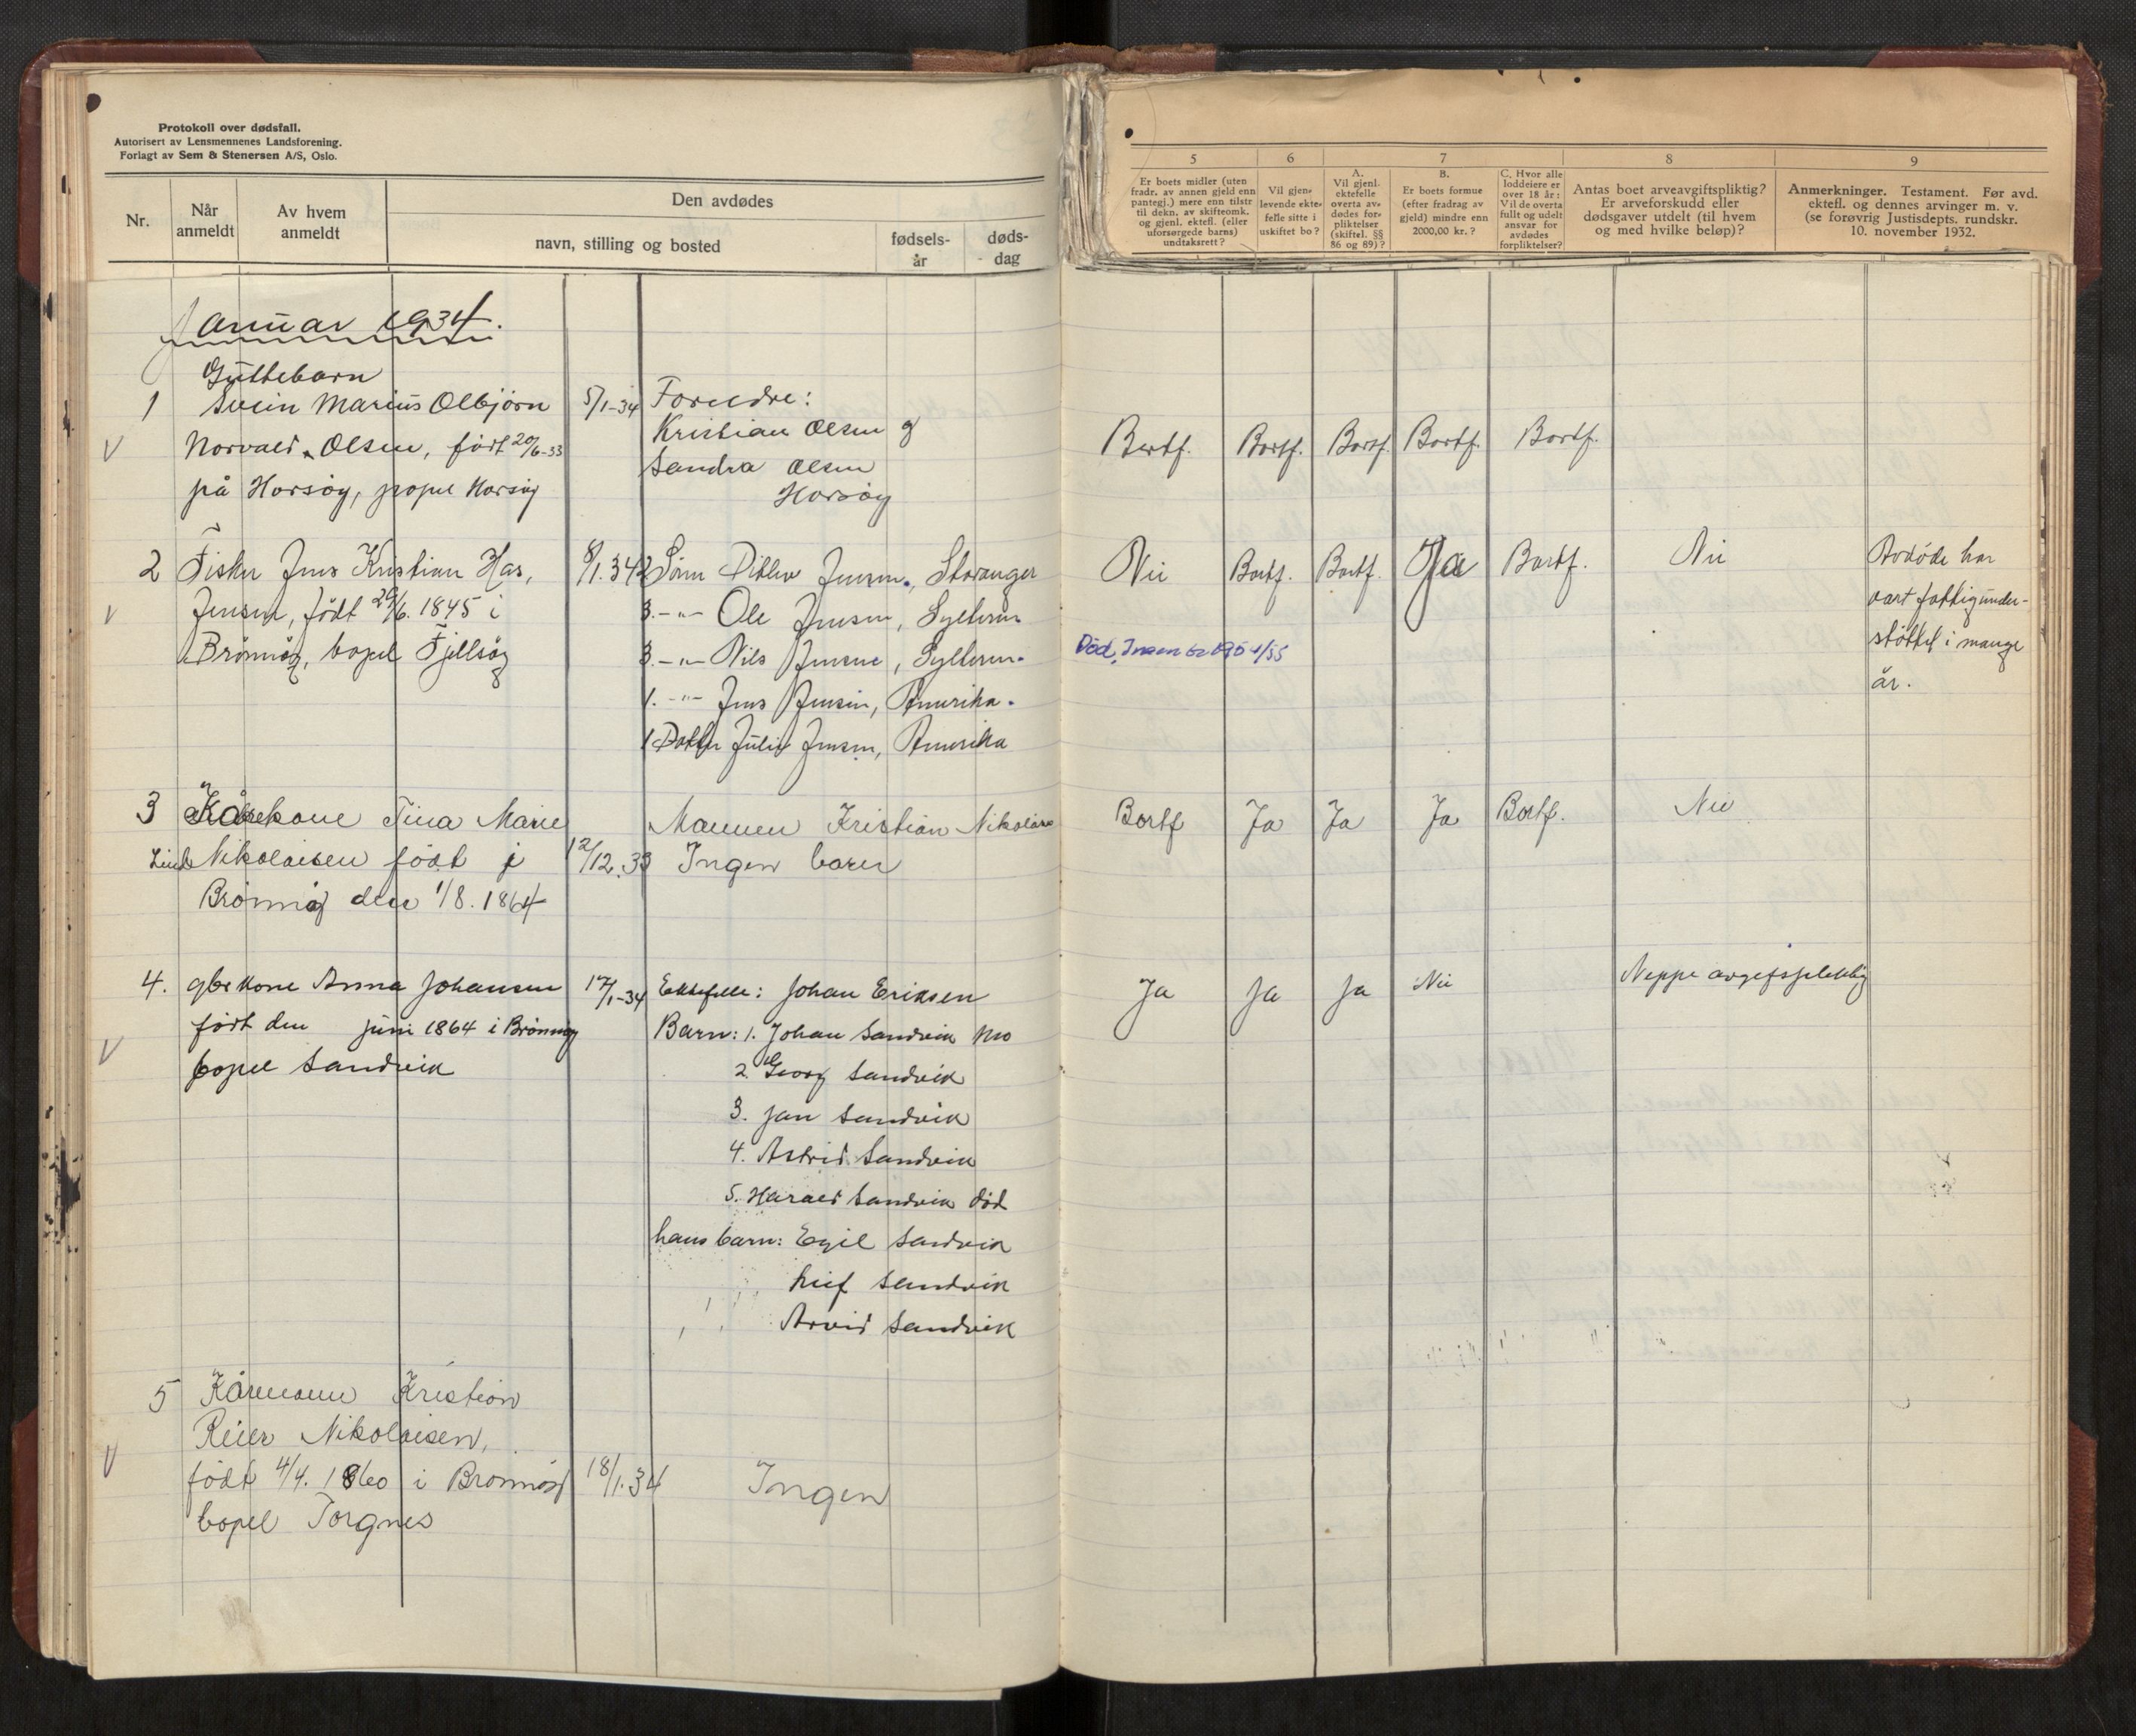 Protokoll over dødsfall.
Autorisert av Lensmennenes Landsforening.
Forlagt av Sem & Stenersen A/S, Oslo.
Nr.
Når anmeldt
Av hvem anmeldt
Den avdødes
navn, stilling og bosted
fødsels-
år
døds-
dag
5
Er boets midler (uten
fradr. av annen gjeld enn
pantegj.) mere enn tilstr
til dekn. av skifteomk.
og gjenl. ektefl. (eller
uforsørgede barns)
undtaksrett?
6
Vil gjen-
levende ekte-
felle sitte i
uskiftet bo?
7
A.
Vil gjenl.
ektefelle
overta av-
dødes for-
pliktelser
(skiftel. §§
86 og 89)?
B.
Er boets formue
(efter fradrag av
gjeld) mindre enn
2000,00 kr.?
C. Hvor alle
loddeiere er
over 18 år:
Vil de overta
fullt og udelt
ansvar for
avdødes
forpliktelser?
8
Antas boet arveavgiftspliktig?
Er arveforskudd eller
dødsgaver utdelt (til hvem
og med hvilke beløp)?
9
Anmerkninger. Testament. Før avd.
ektefl. og dennes arvinger m. v.
(se forøvrig Justisdepts. rundskr.
10. november 1932.
Januar 1934.
Guttebarn
1 Svein Marius Olbjørn 5/1-34 Foreldre:
V Norvald Olsen, født 20/6-33 Kristian Olsen og
på Horsøy, bopel Horsøy Sandra Olsen
Horsøy
Bortf. Bortf. Bortf. Bortf. Bortf.
2 Fisker Jens Kristian Has, 8/1.34 2 Sønn Ditlev Jensen, Stavanger
V Jensen, født 29/6. 1845 i 3. -"- Ole Jensen, Sylteren
Brønnøy, bopel Fjellsøy 3. -"- Nils Jensen, Sylteren.
1. -"- Jens Jensen, Amerika.
1 Datter Julie Jensen, Amerika
Nei Bortf. Bortf. Ja Bortf. Nei Avdøde har
vært fattigunder-
støttet i mange
år.
Død,
3 Kårekone Tina Marie Mannen Kristian Nikolaisen
Nikolaisen født i 12/12.33 Ingen barn
Brønnøy den 1/8. 1864
Bortf Ja Ja Ja Bortf. Nei
4. gbrkone Anna Johansen 17/1-34 Ektefelle: Johan Eriksen
født den juni 1864 i Brønnøy Barn: 1. Johan Sandvik Mo
V bopel Sandvik 2. Georg Sandvik
3. Jan Sandvik
4. Astrid Sandvik
5. Harald Sandvik død
hans barn: Egil Sandvik
" " Leif Sandvik
" " Arvid Sandvik
Ja Ja Ja Nei Neppe avgiftspliktig
5 Kåremann Kristian
Reier Nikolaisen,
V født 4/4. 1860 i Brønnøy 18/1.34 Ingen
bopel Torgnes